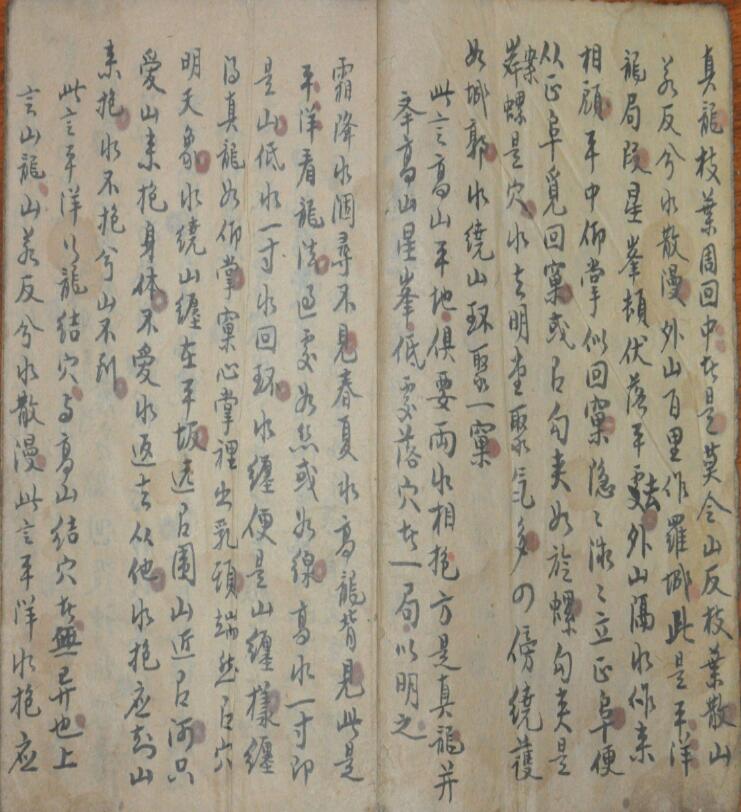 真龍枝葉周回中者是莫令山反枝葉散山
若反兮水散漫外山百里作羅城此是平洋
龍局段星峯頓伏落平處去外山隔水作来
相顧平中仰掌似回窠隐々微々立正阜便
从正阜覓回窠或口勾夹如旋螺勾夹是
案螺是穴水去明堂聚气多四傍繞護
如城郭水繞山环聚一窠
此言高山平地俱要両水相抱方是真龍并
夆高山星峯低處落穴者一局以明之
霜降水涸尋不見春夏水高龍背見此是
平洋看龍法過處如絲或如線高水一寸即
是山低水一寸水回环水纏便是山纏樣纏
得真龍如仰掌窠心掌裡出乳頭端然口穴
明天象水繞山纏在平坂远口圍山近口河只
愛山来抱身体不愛水返去从他水抱应知山
来抱水不抱兮山不到
此言平洋行龍結穴与高山結穴者無异也上
言山龍山若反兮水散漫此言平洋水抱应